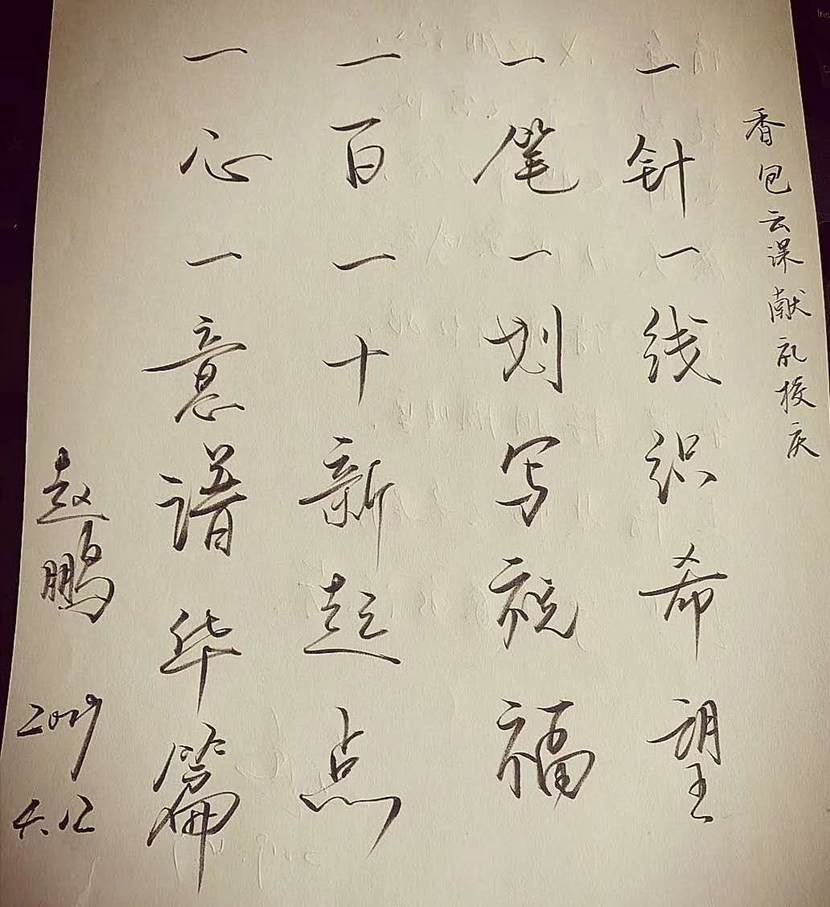 香包云课献礼校庆
一针一线识希望
一笔一划写祝福
一百一十新起点
一心一意谱华篇
赵鹏
2019
4.12